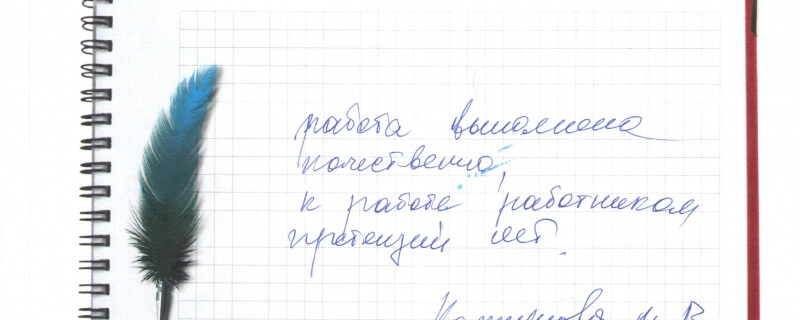 работа выполнена
качественно,
к работе работником
претензий нет.